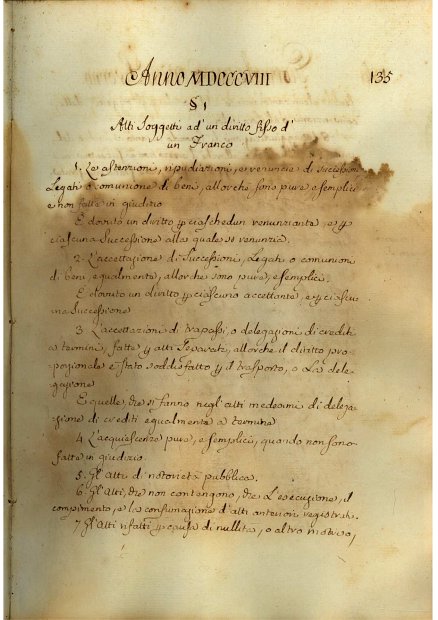 Anno MDCCCVIII 135
§ 1
Atti Soggetti ad' un diritto fisso d'
un Franco
1. Le astenzioni, ripudiazioni, e renuncie di successioni
Legati o comunione di beni, allorche sono pure e semplici
e non fatte in giudizio
È dovuto un diritto p ciaschedun renunziante, e p
ciascuna Successione alla quale si renunzia.
2. L'accettazione di Successioni, Legati o comunioni
di beni, egualmente, allorche sono pure, e semplici.
È dovuto un diritto p ciascuno accettante, e p ciascu
na Successione
3. L'accettazioni di trapassi, o delegazioni di crediti
a termini, fatte p atti Separati, allorche il diritto pro-
porzionale è stato soddisfatto p il trasporto, o La dele-
gazione
E quelle che si fanno negl'atti medesimi di delega-
zione di crediti egualmente a termine
4. L'acquiescenze pure, e semplici, quando non sono
fatte in giudizio.
5. Gl'Atti di notorietà pubblica.
6. Gl'Atti, che non contengono, che L'esecuzione, il
compimento, e la consumazione d'atti anteriori registrati.
7. Gl'Atti rifatti p causa di nullità, o altro motivo,